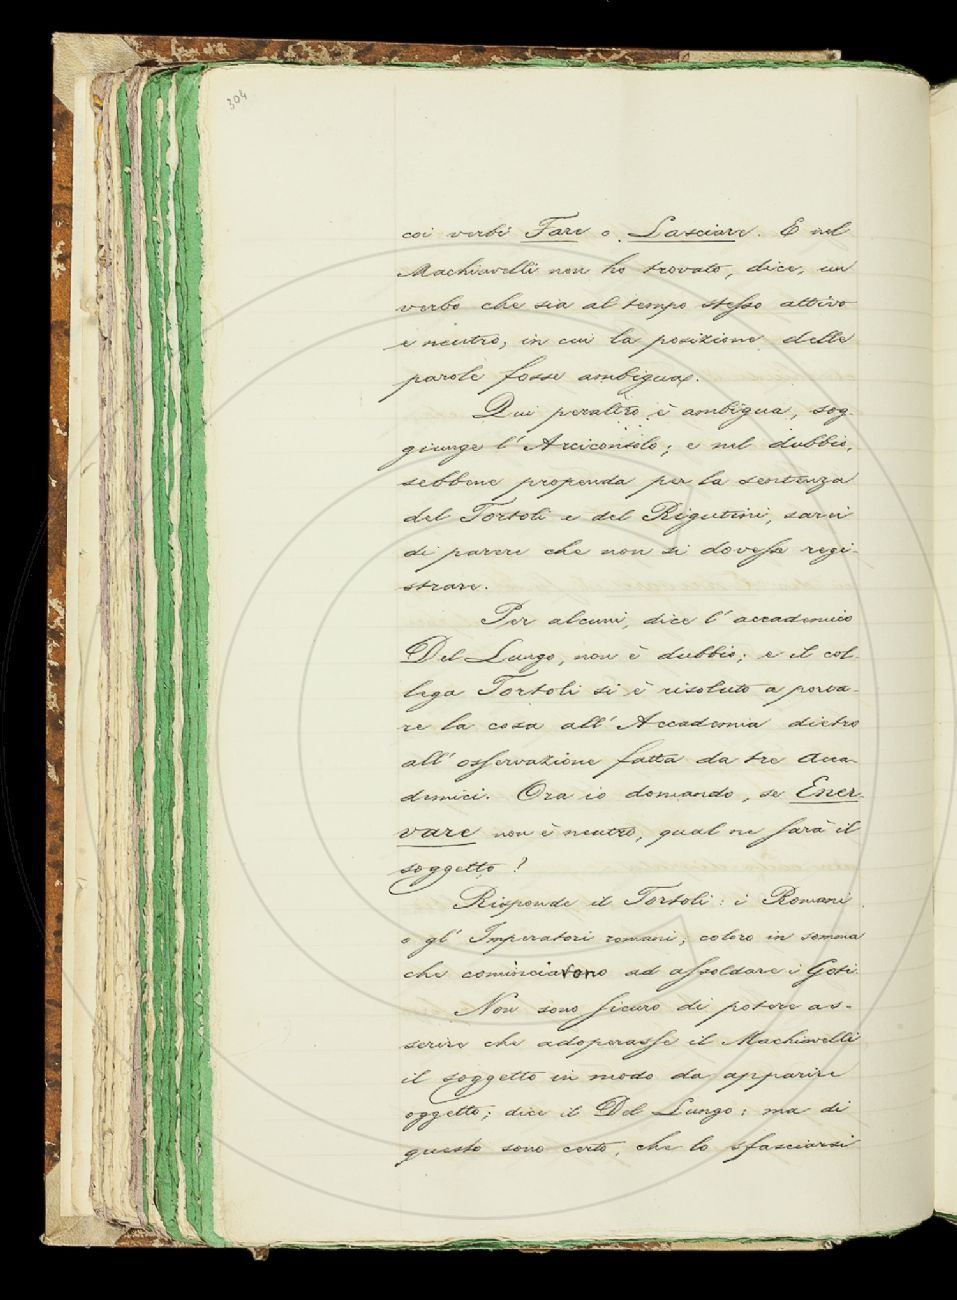 304
coi verbi Fare o Lasciare. E nel
Machiavelli non ho trovato, dice, un
verbo che sia al tempo stesso attivo
e neutro, in cui la posizione delle
parole fosse ambigua.
Qui peraltro è ambigua, sog-
giunge l'Arciconsolo; e nel dubbio,
sebbene propenda per la sentenza
del Tortoli e del Rigutini, sarei
di parere che non si dovesse regi-
strare.
Per alcuni, dice l'accademico
Del Lungo, non è dubbio; e il col-
lega Tortoli si è risoluto a porta-
re la cosa all'Accademia dietro
all'osservazione fatta da tre Acca-
demici. Ora io domando, se Ener-
vare non è neutro, qual ne sarà il
soggetto?
Risponde il Tortoli: i Romani
o gl'Imperatori romani; coloro in somma
che cominciarono ad assoldare i Goti.
Non sono sicuro di potere as-
serire che adoperasse il Machiavelli
il soggetto in modo da apparire
oggetto; dice il Del Lungo: ma di
questo sono certo, che lo sfasciarsi